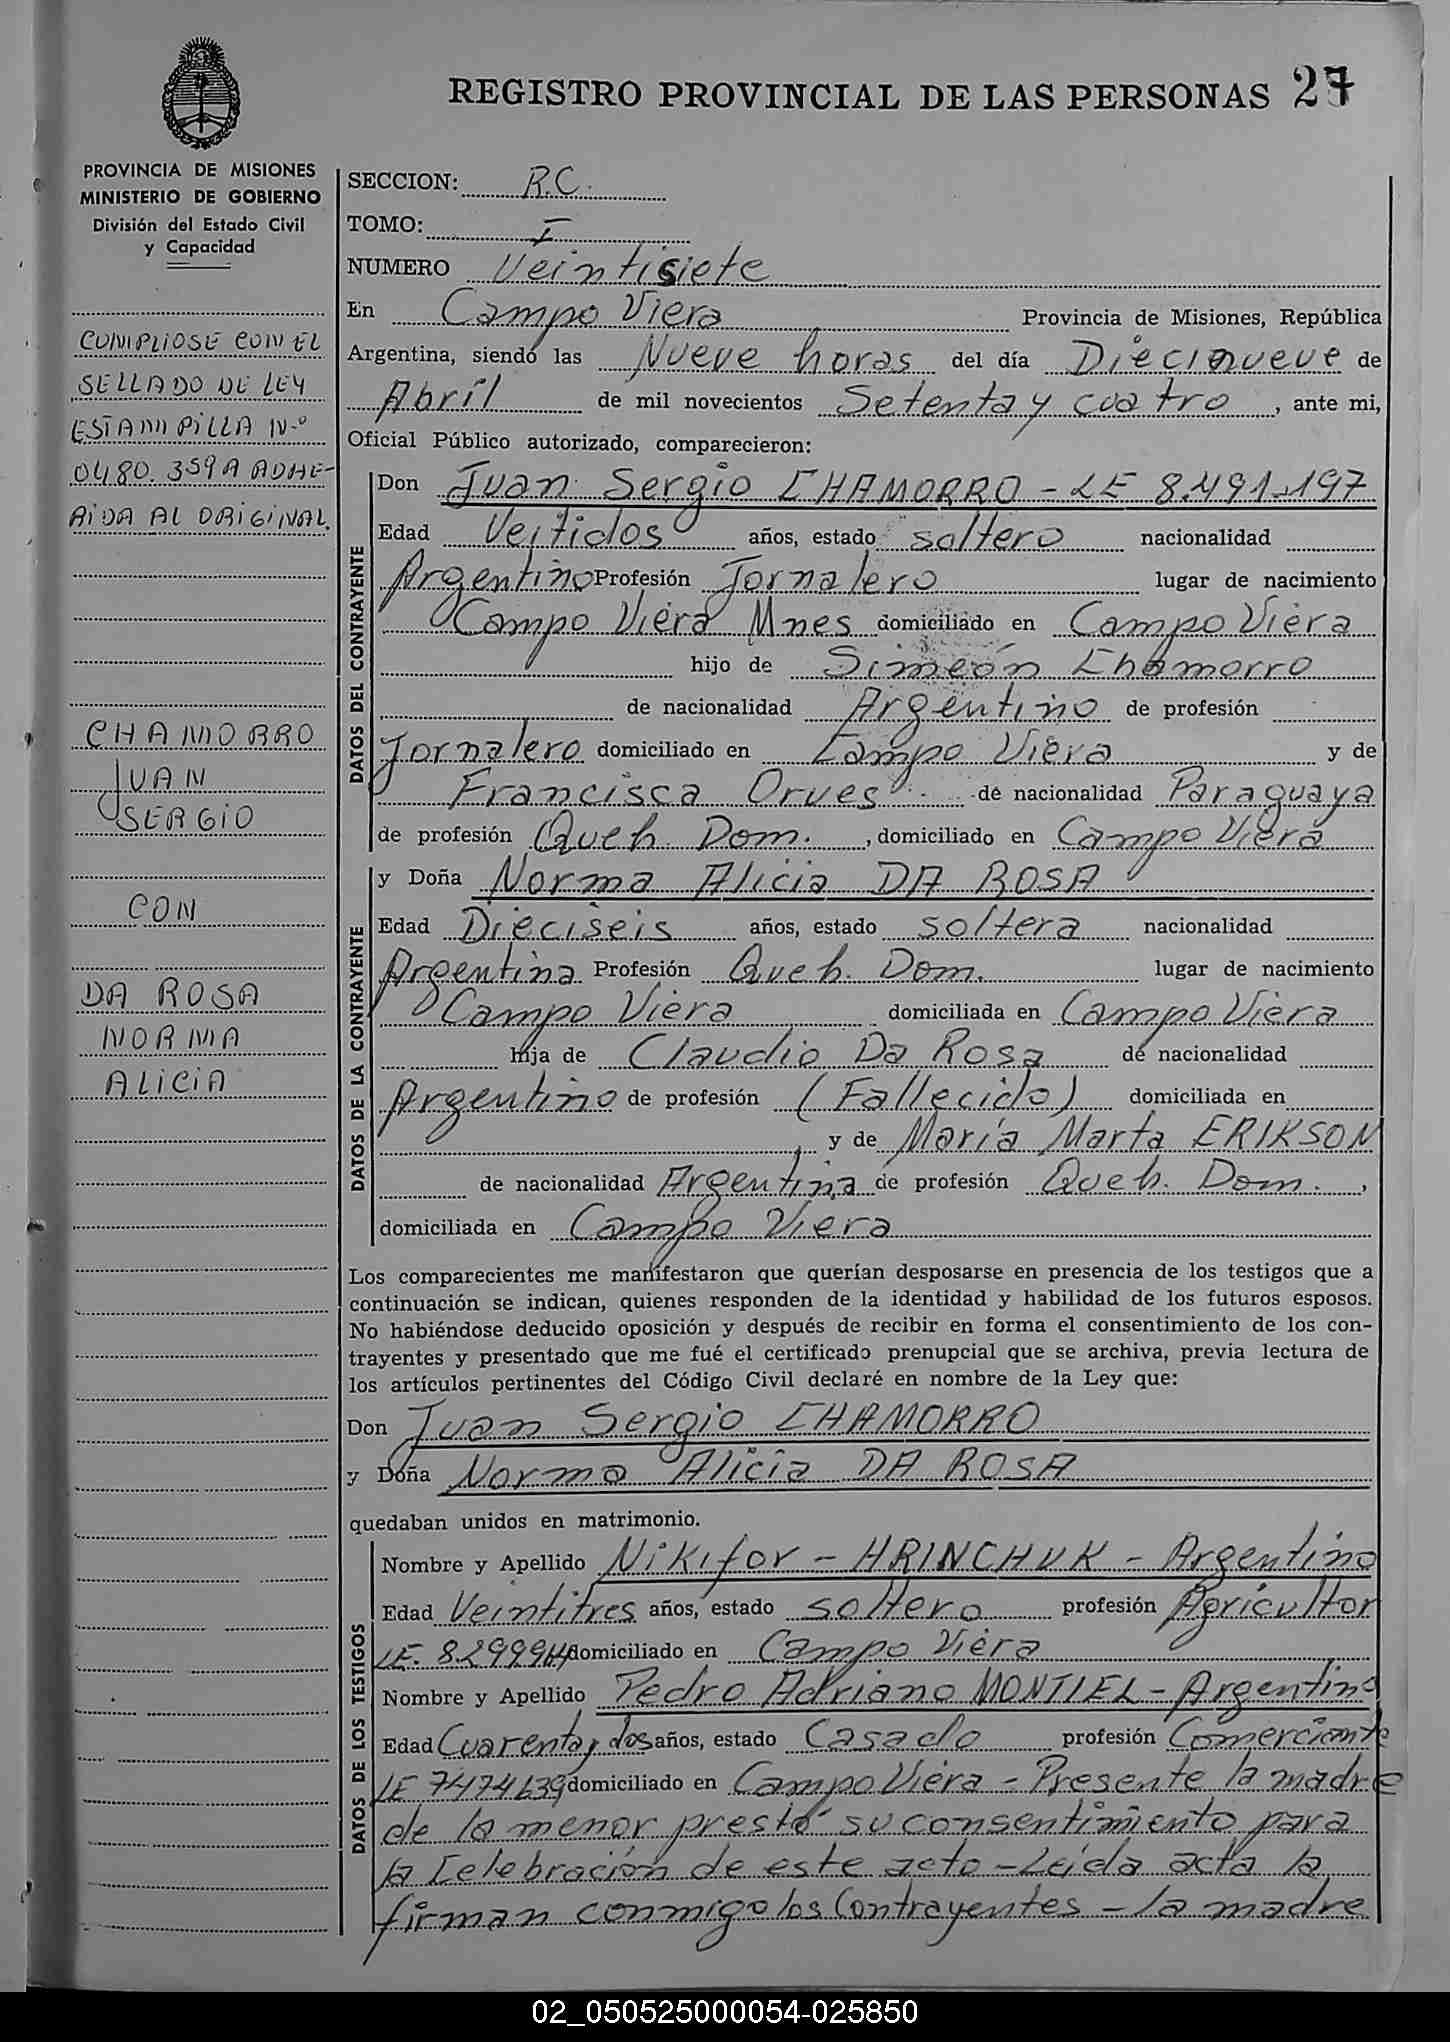 REGISTRO PROVINCIAL DE LAS PERSONAS 27
PROVINCIA DE MISIONES
MINISTERIO DE GOBIERNO
División del Estado Civil
y Capacidad
CUMPLIOSE CON EL
SELLADO DE LEY
ESTAMPILLA N.º
0480.359A ADHE-
RIDA AL ORIGINAL.
CHAMORRO
JUAN
SERGIO
CON
DA ROSA
NORMA
ALICIA
SECCION: R.C.
TOMO: I
NUMERO Veintisiete
En Campo Viera Provincia de Misiones, República
Argentina, siendo las Nueve horas del día Diecinueve de
Abril de mil novecientos Setenta y cuatro, ante mi,
Oficial Público autorizado, comparecieron:
DATOS DEL CONTRAYENTE
Don Juan Sergio CHAMORRO - LE 8.491.197
Edad Veitidos años, estado soltero nacionalidad
Argentino Profesión Jornalero lugar de nacimiento
Campo Viera Mnes domiciliado en Campo Viera
hijo de Simeón Chamorro
de nacionalidad Argentino de profesión
Jornalero domiciliado en Campo Viera y de
Francisca Orues de nacionalidad Paraguaya
de profesión Queh. Dom., domiciliado en Campo Viera
DATOS DE LA CONTRAYENTE
y Doña Norma Alicia DA ROSA
Edad Dieciseis años, estado soltera nacionalidad
Argentina Profesión Queh. Dom. lugar de nacimiento
Campo Viera domiciliada en Campo Viera
hija de Claudio Da Rosa de nacionalidad
Argentino de profesión (Fallecido) domiciliada en
y de María Marta ERIKSON
de nacionalidad Argentina de profesión Queh. Dom.,
domiciliada en Campo Viera
Los comparecientes me manifestaron que querían desposarse en presencia de los testigos que a
continuación se indican, quienes responden de la identidad y habilidad de los futuros esposos.
No habiéndose deducido oposición y después de recibir en forma el consentimiento de los con-
trayentes y presentado que me fué el certificado prenupcial que se archiva, previa lectura de
los artículos pertinentes del Código Civil declaré en nombre de la Ley que:
Don Juan Sergio CHAMORRO
y Doña Norma Alicia DA ROSA
quedaban unidos en matrimonio.
DATOS DE LOS TESTIGOS
Nombre y Apellido Nikifor - HRINCHUK - Argentino
Edad Veintitres años, estado soltero profesión Agricultor
LE. domiciliado en Campo Viera
Nombre y Apellido Pedro Adriano MONTIEL - Argentino
Edad Cuarenta y dos años, estado Casado profesión Comerciante
LE 7474639 domiciliado en Campo Viera - Presente la madre
de la menor prestó su consentimiento para
la Celebración de este acto - Leída acta la
firman conmigo los Contrayentes - la madre
02_050525000054-025850